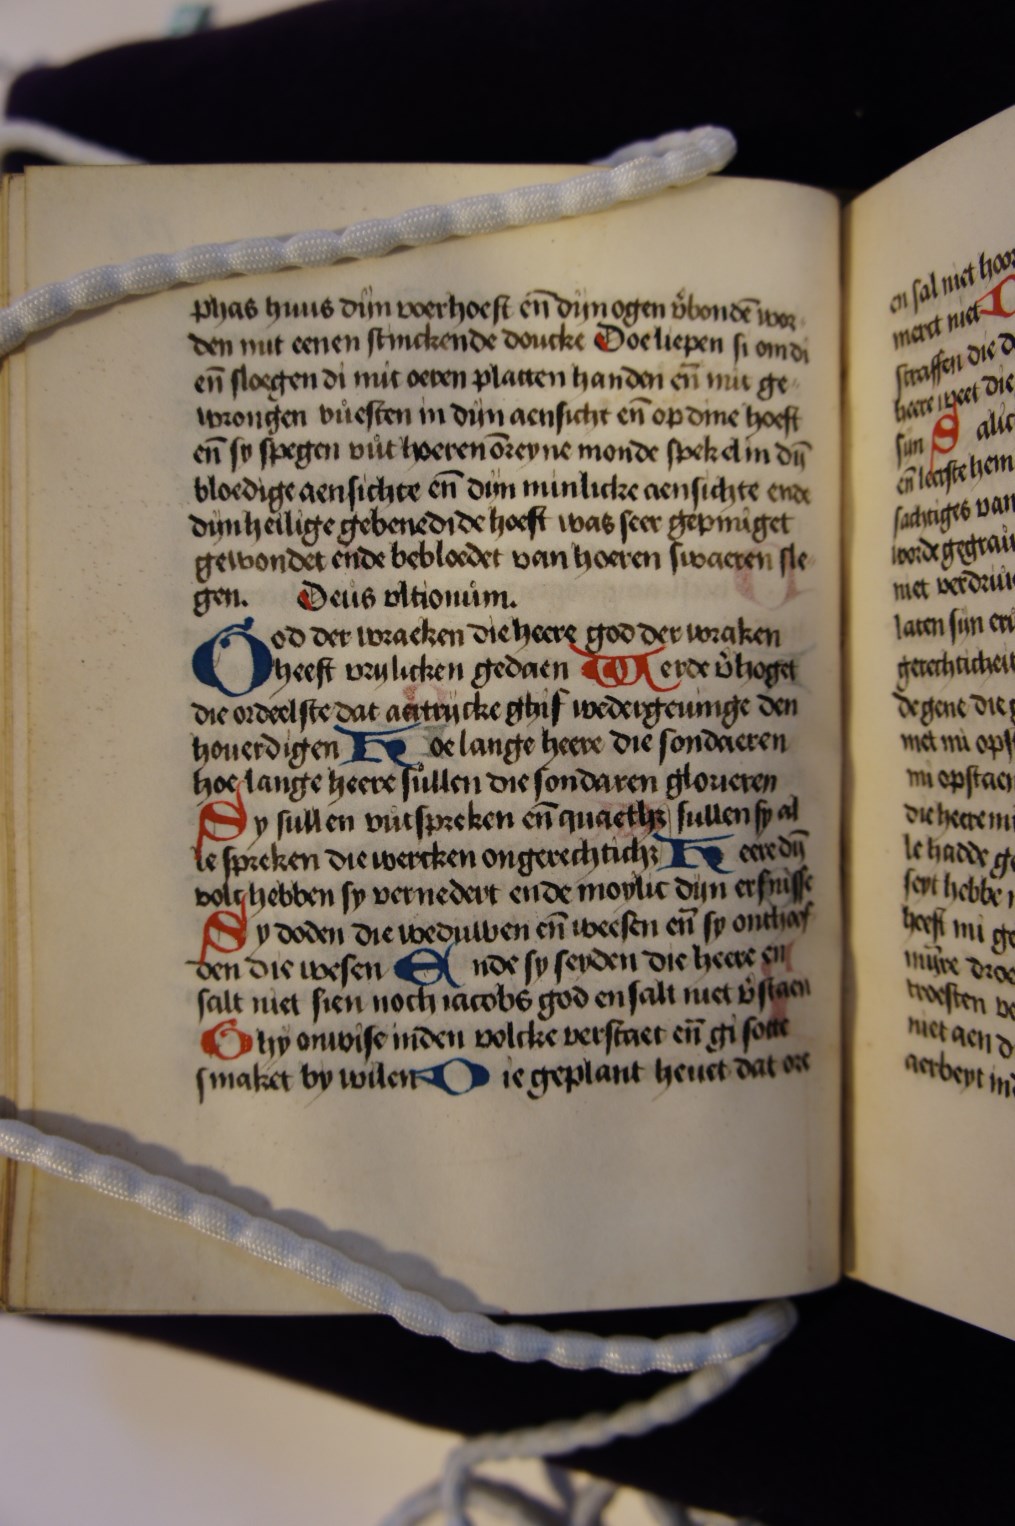 phas huus dijn voerhoeft eñ dijn ogen v̉bondē wor
den mit eenen stinckende doucke Doe liepen si om di
eñ sloegen di mit oeren platten handen eñ mit ge
wrongen vuesten in dijn aensicht eñ op dine hoeft
eñ sy spegen vut hoeren ōreyne monde spekel in dijn̄
bloedige aensichte eñ dijn minlicke aensichte ende
dijn heilige gebenedide hoeft was seer gepiniget
gewondet ende bebloedet van hoeren swaeren sle
gen. Deus vltionum.
God der wraeken die heere god der wraken
heeft vrylicken gedaen Werde v̉hoget
die ordeelste dat aertrijcke ghif wedergeuinge den
houerdigen Hoe lange heere die sondaeren
hoe lange heere sullen die sondaren glorieren
Sy sullen vutspreken eñ quaethz sullen sy al
le spreken die wercken ongerechtichz Heere dijn̄
volc hebben sy vernedert ende moylic dijn erfnisse
Sy doden die weduwen eñ weesen eñ sy onthoef
den die wesen Ende sy seyden die heere en
salt niet sien noch iacobs god en salt niet v̉staen
Ghy onwise inden volcke verstaet eñ gi sotte
smaket by wilen Die geplant heuet dat ore
en sal niet hoor
merct niet
straffen die d
heere weet die
sijn Salic
eñ leerste hem
sachtiges van
worde gegrau
niet verdriu
laten sijn er
gerechticheit
degene die
met mi opst
mi opstaen
die heere mi
le hadde ge
seyt hebbe
heeft mi ge
mijre droe
troesten
niet aen d
aerbeyt in